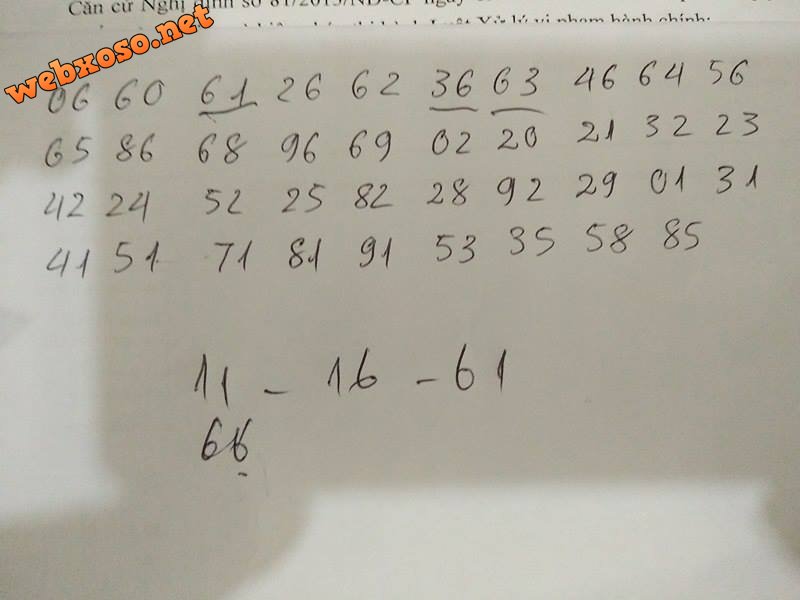 Căn cứ Nghị định số 81/2013/NĐ-CP ngày
Xử lý vi phạm hành chính;
webxoso.net
06 60 61 26 62 36 63 46 64 56
65 86 68 96 69 02 20 21 32 23
42 24 52 25 82 28 92 29 01 31
41 51 71 81 91 53 35 58 85
11 - 16 - 61
66